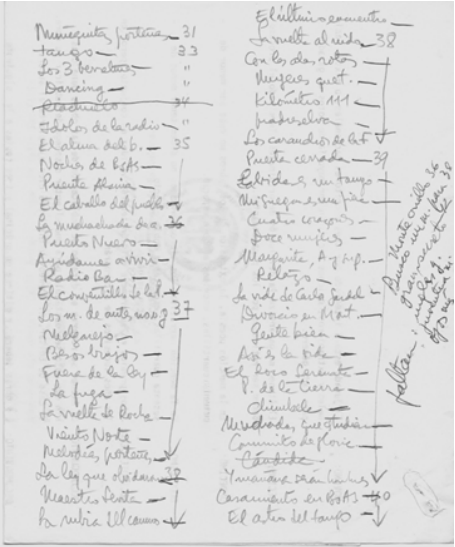 Muñequitas porteñas — 31
Tango — 33
Los 3 berretines — "
Dancing — "
Riachuelo 34
Idolos de la radio — "
El alma del b. — 35
Noches de BsAs —
Puente Alsina —
El caballo del pueblo —
La muchachada de a. — 36
Puerto Nuevo —
Ayúdame a vivir —
Radio Bar —
El conventillo de la P.
Los m. de antes no u. g 37
Melgarejo —
Besos brujos —
Fuera de la ley —
La fuga —
La vuelta de Rocha —
Viento Norte —
Melodías porteñas —
La ley que olvidaron 38
Maestro Levita —
La rubia del camino —
El último encuentro —
La vuelta al nido — 38
Con las alas rotas —
Mujeres que t. —
Kilómetro 111 —
Madreselva —
Los caranchos de la F
Puerta cerrada — 39
La vida es un tango —
Mi suegra es una fiera —
Cuatro corazones —
Doce mujeres —
Margarita, A y su p. —
Retazo —
La vida de Carlos Gardel —
Divorcio en Mont. —
Gente bien —
Así es la vida —
El loco Serenata —
P. de la tierra —
Chimbela —
Muchachas que estudian —
Caminito de gloria —
Cándida —
Y mañana serán hombres
Casamiento en BsAs — 40
El astro del tango —
faltan:
Monte criollo 36